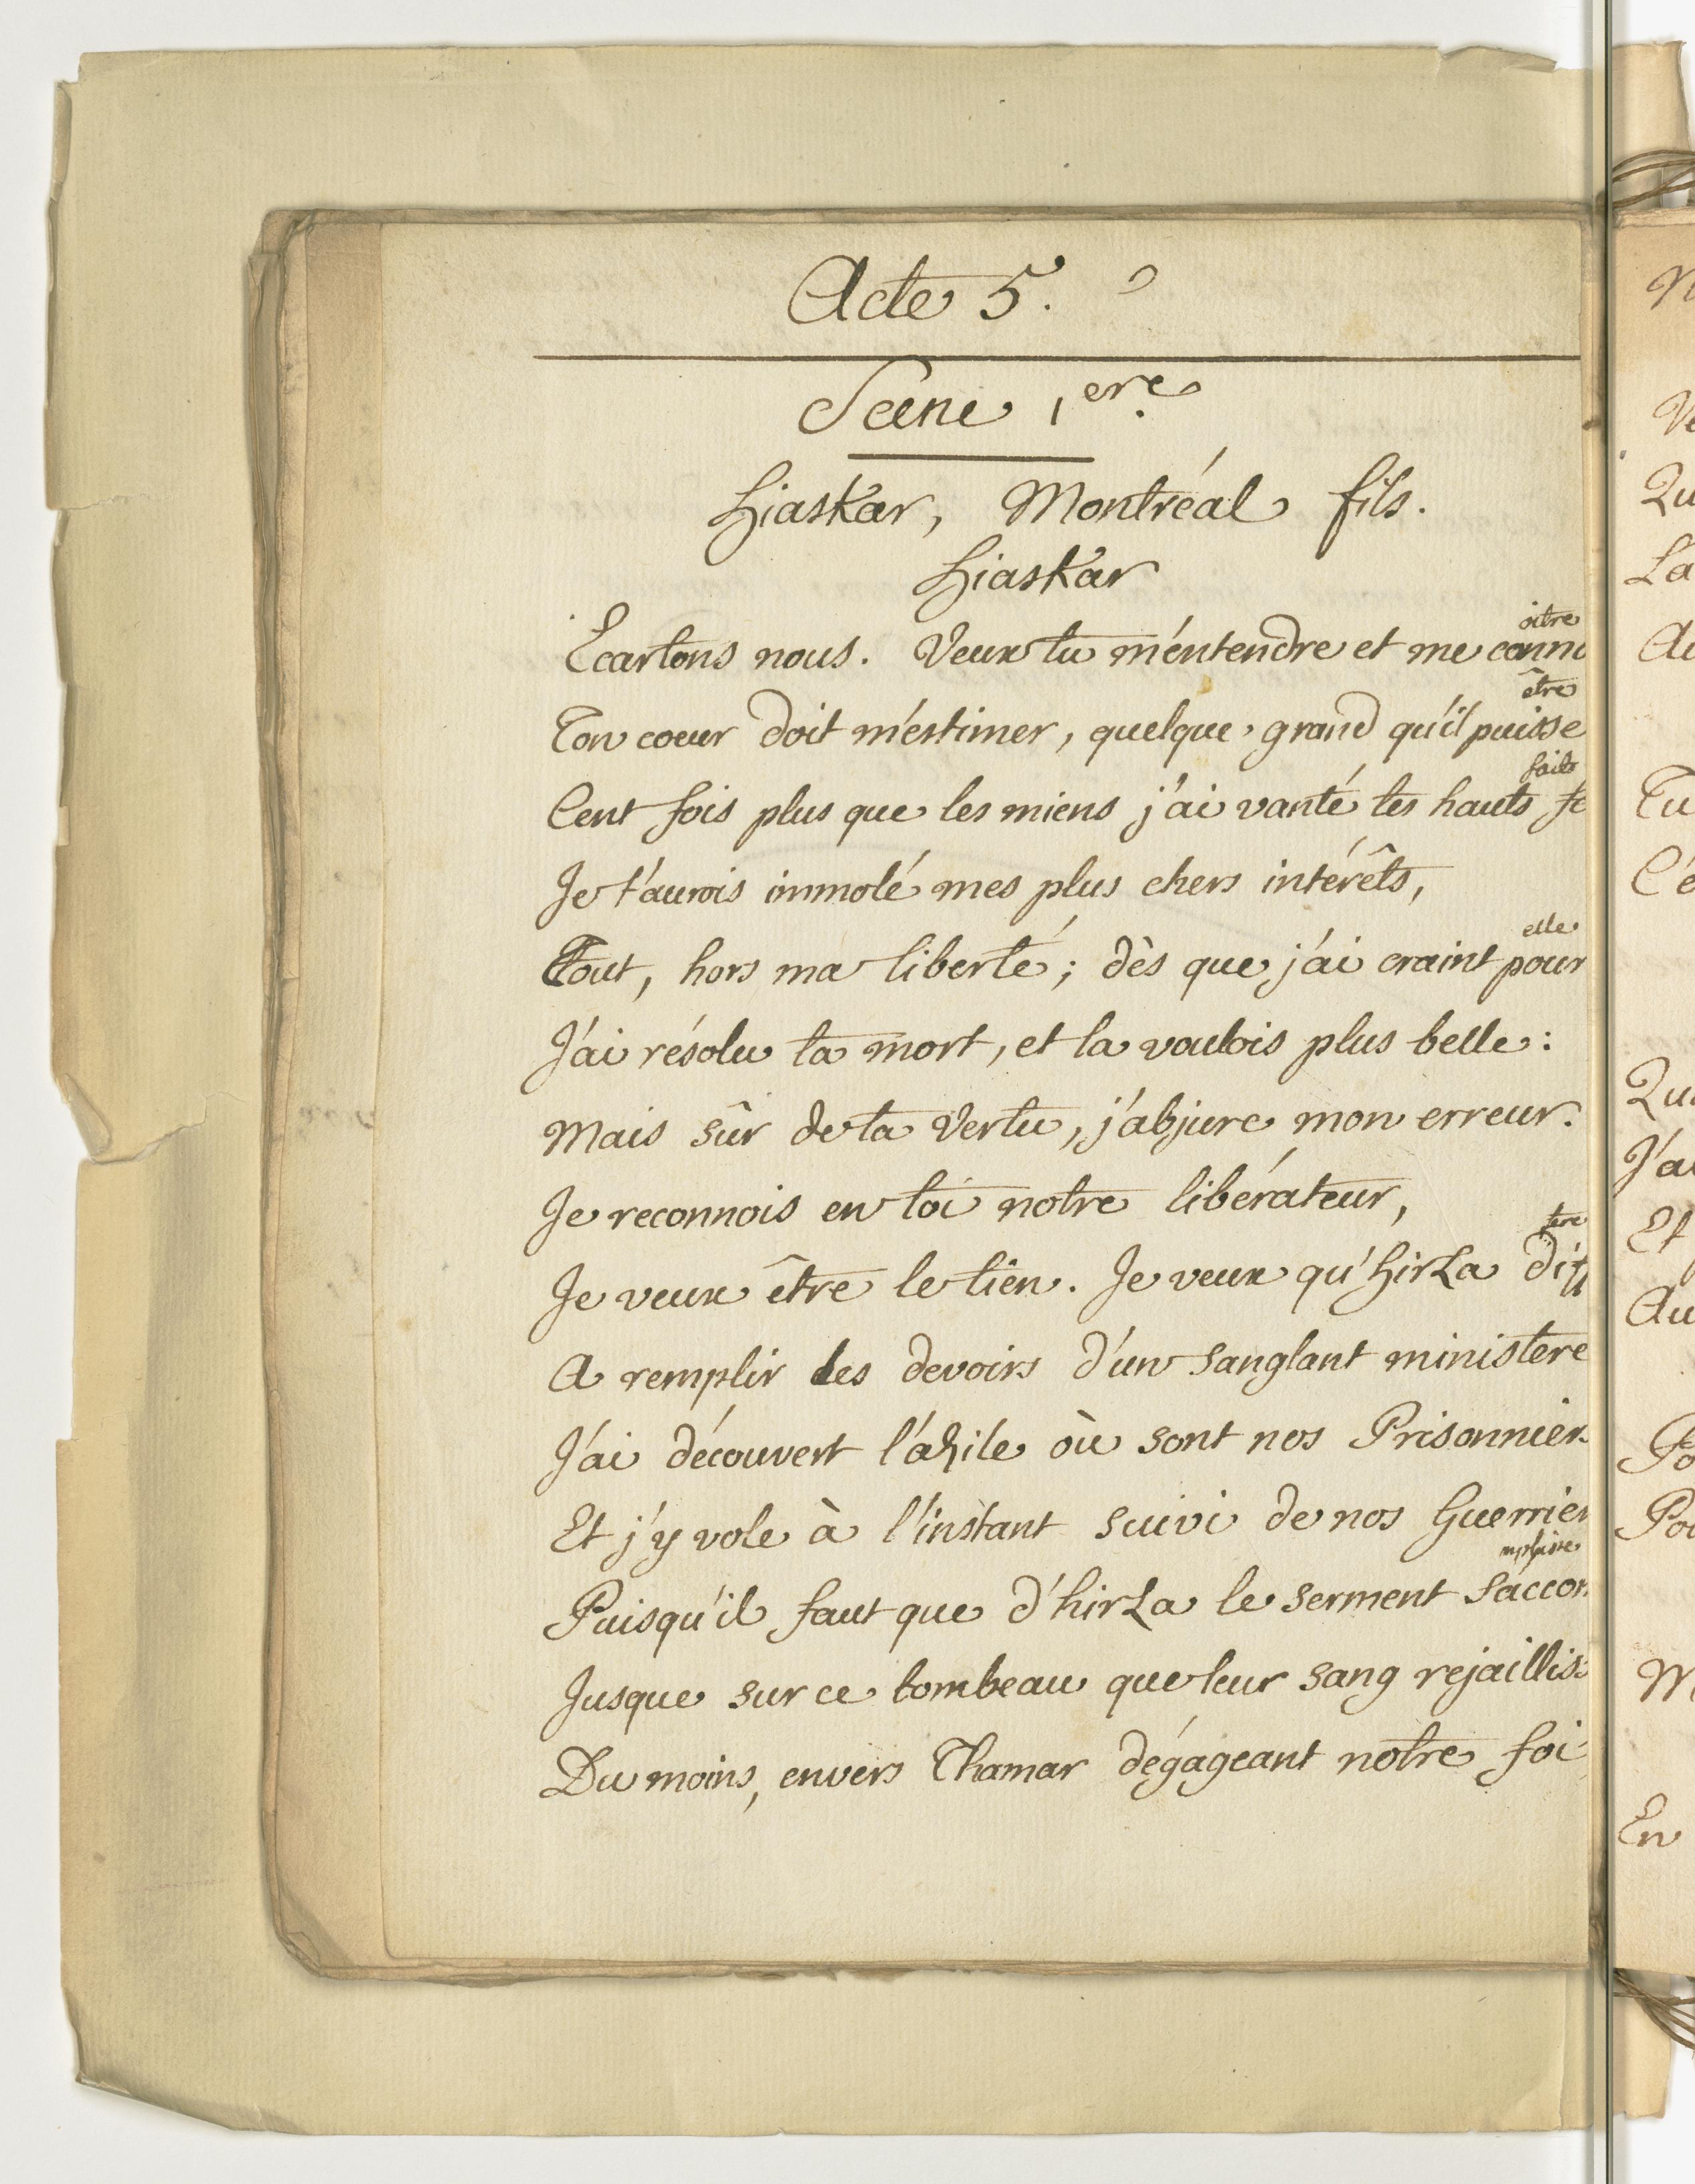 Acte 5.
Scene 1.ere
Hiaskar, Montréal fils.
Hiaskar
Ecartons nous. Veux tu m'entendre et me connoitre
Ton coeur doit m'estimer, quelque grand qu'il puisse être
Cent fois plus que les miens j'ai vanté tes hauts faits
Je t'aurois immolé mes plus chers intérêts,
Tout, hors ma liberté; dès que j'ai craint pour elle
J'ai résolu ta mort, et la voulois plus belle:
Mais sûr de ta vertu, j'abjure mon erreur.
Je reconnois en toi notre libérateur,
Je veux être le tien. Je veux qu'hirza differe
A remplir les devoirs d'un sanglant ministere
J'ai découvert l'azile où sont nos Prisonnier
Et j'y vole à l'instant suivi de nos Guerrier
Puisqu'il faut que d'hirza le serment s'accomplisse
Jusque sur ce tombeau que leur sang rejaillis
Du moins, envers Thamar dégageant notre foi
Qu
La
Tu
C'é
J'ai
Et
Au
Po
Pou
En